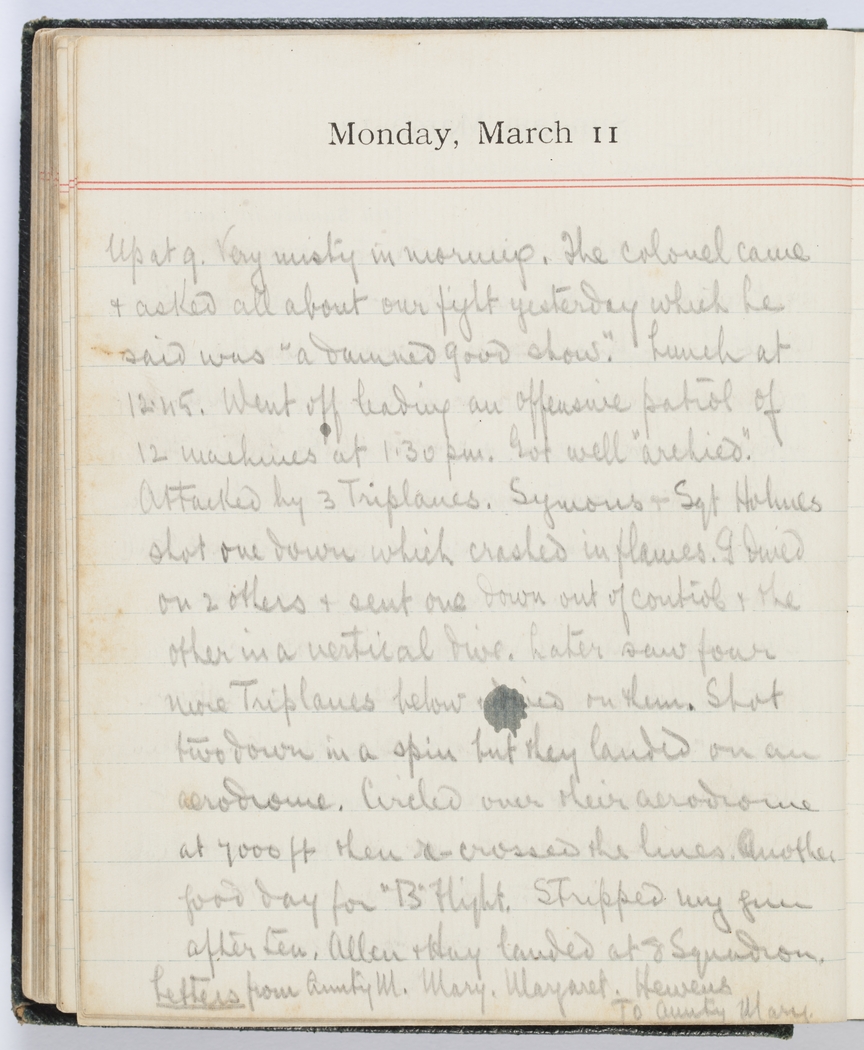 Monday, March 11
Up at 9. Very misty in morning. The colonel came
+ asked all about our fight yesterday which he
said was "a damned good show." Lunch at
12.45. Went off leading an offensive patrol of
12 machines at 1.30 pm. Got well "archied".
Attacked by 3 Triplanes. Symons + Sgt Holmes
shot one down which crashed in flames. I dived
on 2 others + sent one down out of control + the
other in a vertical dive. Later saw four
more Triplanes below dived on them. Shot
two down in a spin but they landed on an
aerodrome. Circled over their aerodrome
at 7000 ft then re-crossed the lines. Another
good day for "B" Flight. Stripped my gun
after tea. Allen + Hay landed at 8 Squadron.
Letters from Aunty M. Mary. Margaret. Hewens
To Aunty Mary.